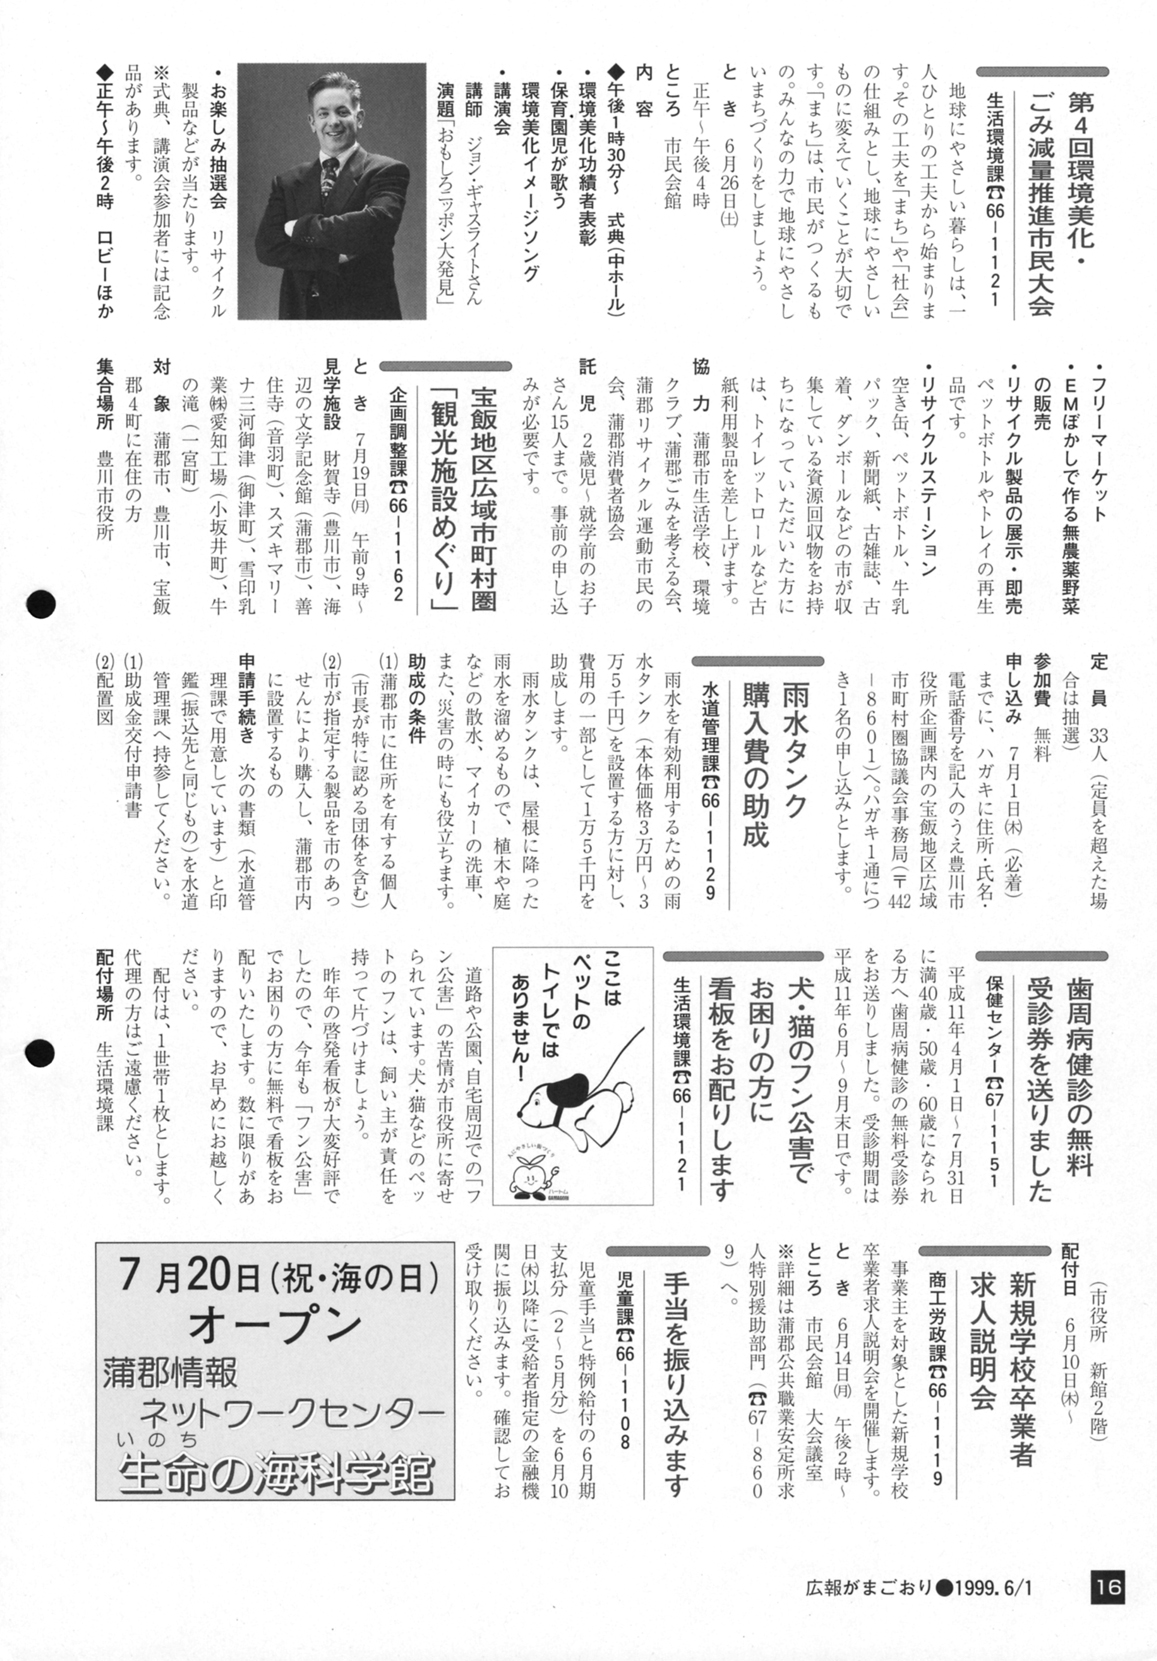 第4回環境美化・
ごみ減量推進市民大会
生活環境課☎66―1121
地球にやさしい暮らしは、一
人ひとりの工夫から始まりま
す。その工夫を「まち」や「社会」
の仕組みとし、地球にやさしい
ものに変えていくことが大切で
す。「まち」は、市民がつくるも
の。みんなの力で地球にやさし
いまちづくりをしましょう。
とき 6月26日(土)
正午～午後4時
ところ 市民会館
内容
◆午後1時30分～ 式典(中ホール)
・環境美化功績者表彰
・保育園児が歌う
環境美化イメージソング
・講演会
講師 ジョン・ギャスライトさん
演題「おもしろニッポン大発見」
・お楽しみ抽選会 リサイクル
製品などが当たります。
※式典、講演会参加者には記念
品があります。
◆正午～午後2時 ロビーほか
・フリーマーケット
・EMぼかしで作る無農薬野菜
の販売
・リサイクル製品の展示・即売
ペットボトルやトレイの再生
品です。
・リサイクルステーション
空き缶、ペットボトル、牛乳
パック、新聞紙、古雑誌、古
着、ダンボールなどの市が収
集している資源回収物をお持
ちになっていただいた方に
は、トイレットロールなど古
紙利用製品を差し上げます。
協力 蒲郡市生活学校、環境
クラブ、蒲郡ごみを考える会、
蒲郡リサイクル運動市民の
会、蒲郡消費者協会
託児 2歳児～就学前のお子
さん15人まで。事前の申し込
みが必要です。
宝飯地区広域市町村圏
「観光施設めぐり」
企画調整課☎66―1162
とき 7月19日(月) 午前9時～
見学施設 財賀寺(豊川市)、海
辺の文学記念館(蒲郡市)、善
住寺(音羽町)、スズキマリー
ナ三河御津(御津町)、雪印乳
業㈱愛知工場(小坂井町)、牛
の滝(一宮町)
対象 蒲郡市、豊川市、宝飯
郡4町に在住の方
集合場所 豊川市役所
定員 33人(定員を超えた場
合は抽選)
参加費 無料
申し込み 7月1日(木)(必着)
までに、ハガキに住所・氏名・
電話番号を記入のうえ豊川市
役所企画課内の宝飯地区広域
市町村圏協議会事務局(〒442
―8601)へ。ハガキ1通につ
き1名の申し込みとします。
雨水タンク
購入費の助成
水道管理課☎66―1129
雨水を有効利用するための雨
水タンク(本体価格3万円～3
万5千円)を設置する方に対し、
費用の一部として1万5千円を
助成します。
雨水タンクは、屋根に降った
雨水を溜めるもので、植木や庭
などの散水、マイカーの洗車、
また、災害の時にも役立ちます。
助成の条件
(1)蒲郡市に住所を有する個人
(市長が特に認める団体を含む)
(2)市が指定する製品を市のあっ
せんにより購入し、蒲郡市内
に設置するもの
申請手続き 次の書類(水道管
理課で用意しています)と印
鑑(振込先と同じもの)を水道
管理課へ持参してください。
(1)助成金交付申請書
(2)配置図
歯周病健診の無料
受診券を送りました
保健センター☎67―1151
平成11年4月1日～7月31日
に満40歳・50歳・60歳になられ
る方へ歯周病健診の無料受診券
をお送りしました。受診期間は
平成11年6月～9月末日です。
犬・猫のフン公害で
お困りの方に
看板をお配りします
生活環境課☎66―1121
ここは
ペットの
トイレでは
ありません!
道路や公園、自宅周辺での「フ
ン公害」の苦情が市役所に寄せ
られています。犬・猫などのペッ
トのフンは、飼い主が責任を
持って片づけましょう。
昨年の啓発看板が大変好評で
したので、今年も「フン公害」
でお困りの方に無料で看板をお
配りいたします。数に限りがあ
りますので、お早めにお越しく
ださい。
配付は、1世帯1枚とします。
代理の方はご遠慮ください。
配付場所 生活環境課
(市役所 新館2階)
配付日 6月10日(木)～
新規学校卒業者
求人説明会
商工労政課☎66―1119
事業主を対象とした新規学校
卒業者求人説明会を開催します。
とき 6月14日(月) 午後2時～
ところ 市民会館 大会議室
※詳細は蒲郡公共職業安定所求
人特別援助部門(☎67―860
9)へ。
手当を振り込みます
児童課☎66―1108
児童手当と特例給付の6月期
支払分(2～5月分)を6月10
日(木)以降に受給者指定の金融機
関に振り込みます。確認してお
受け取りください。
7月20日(祝・海の日)
オープン
蒲郡情報
ネットワークセンター
いのち
生命の海科学館
広報がまごおり●1999.6/1
16